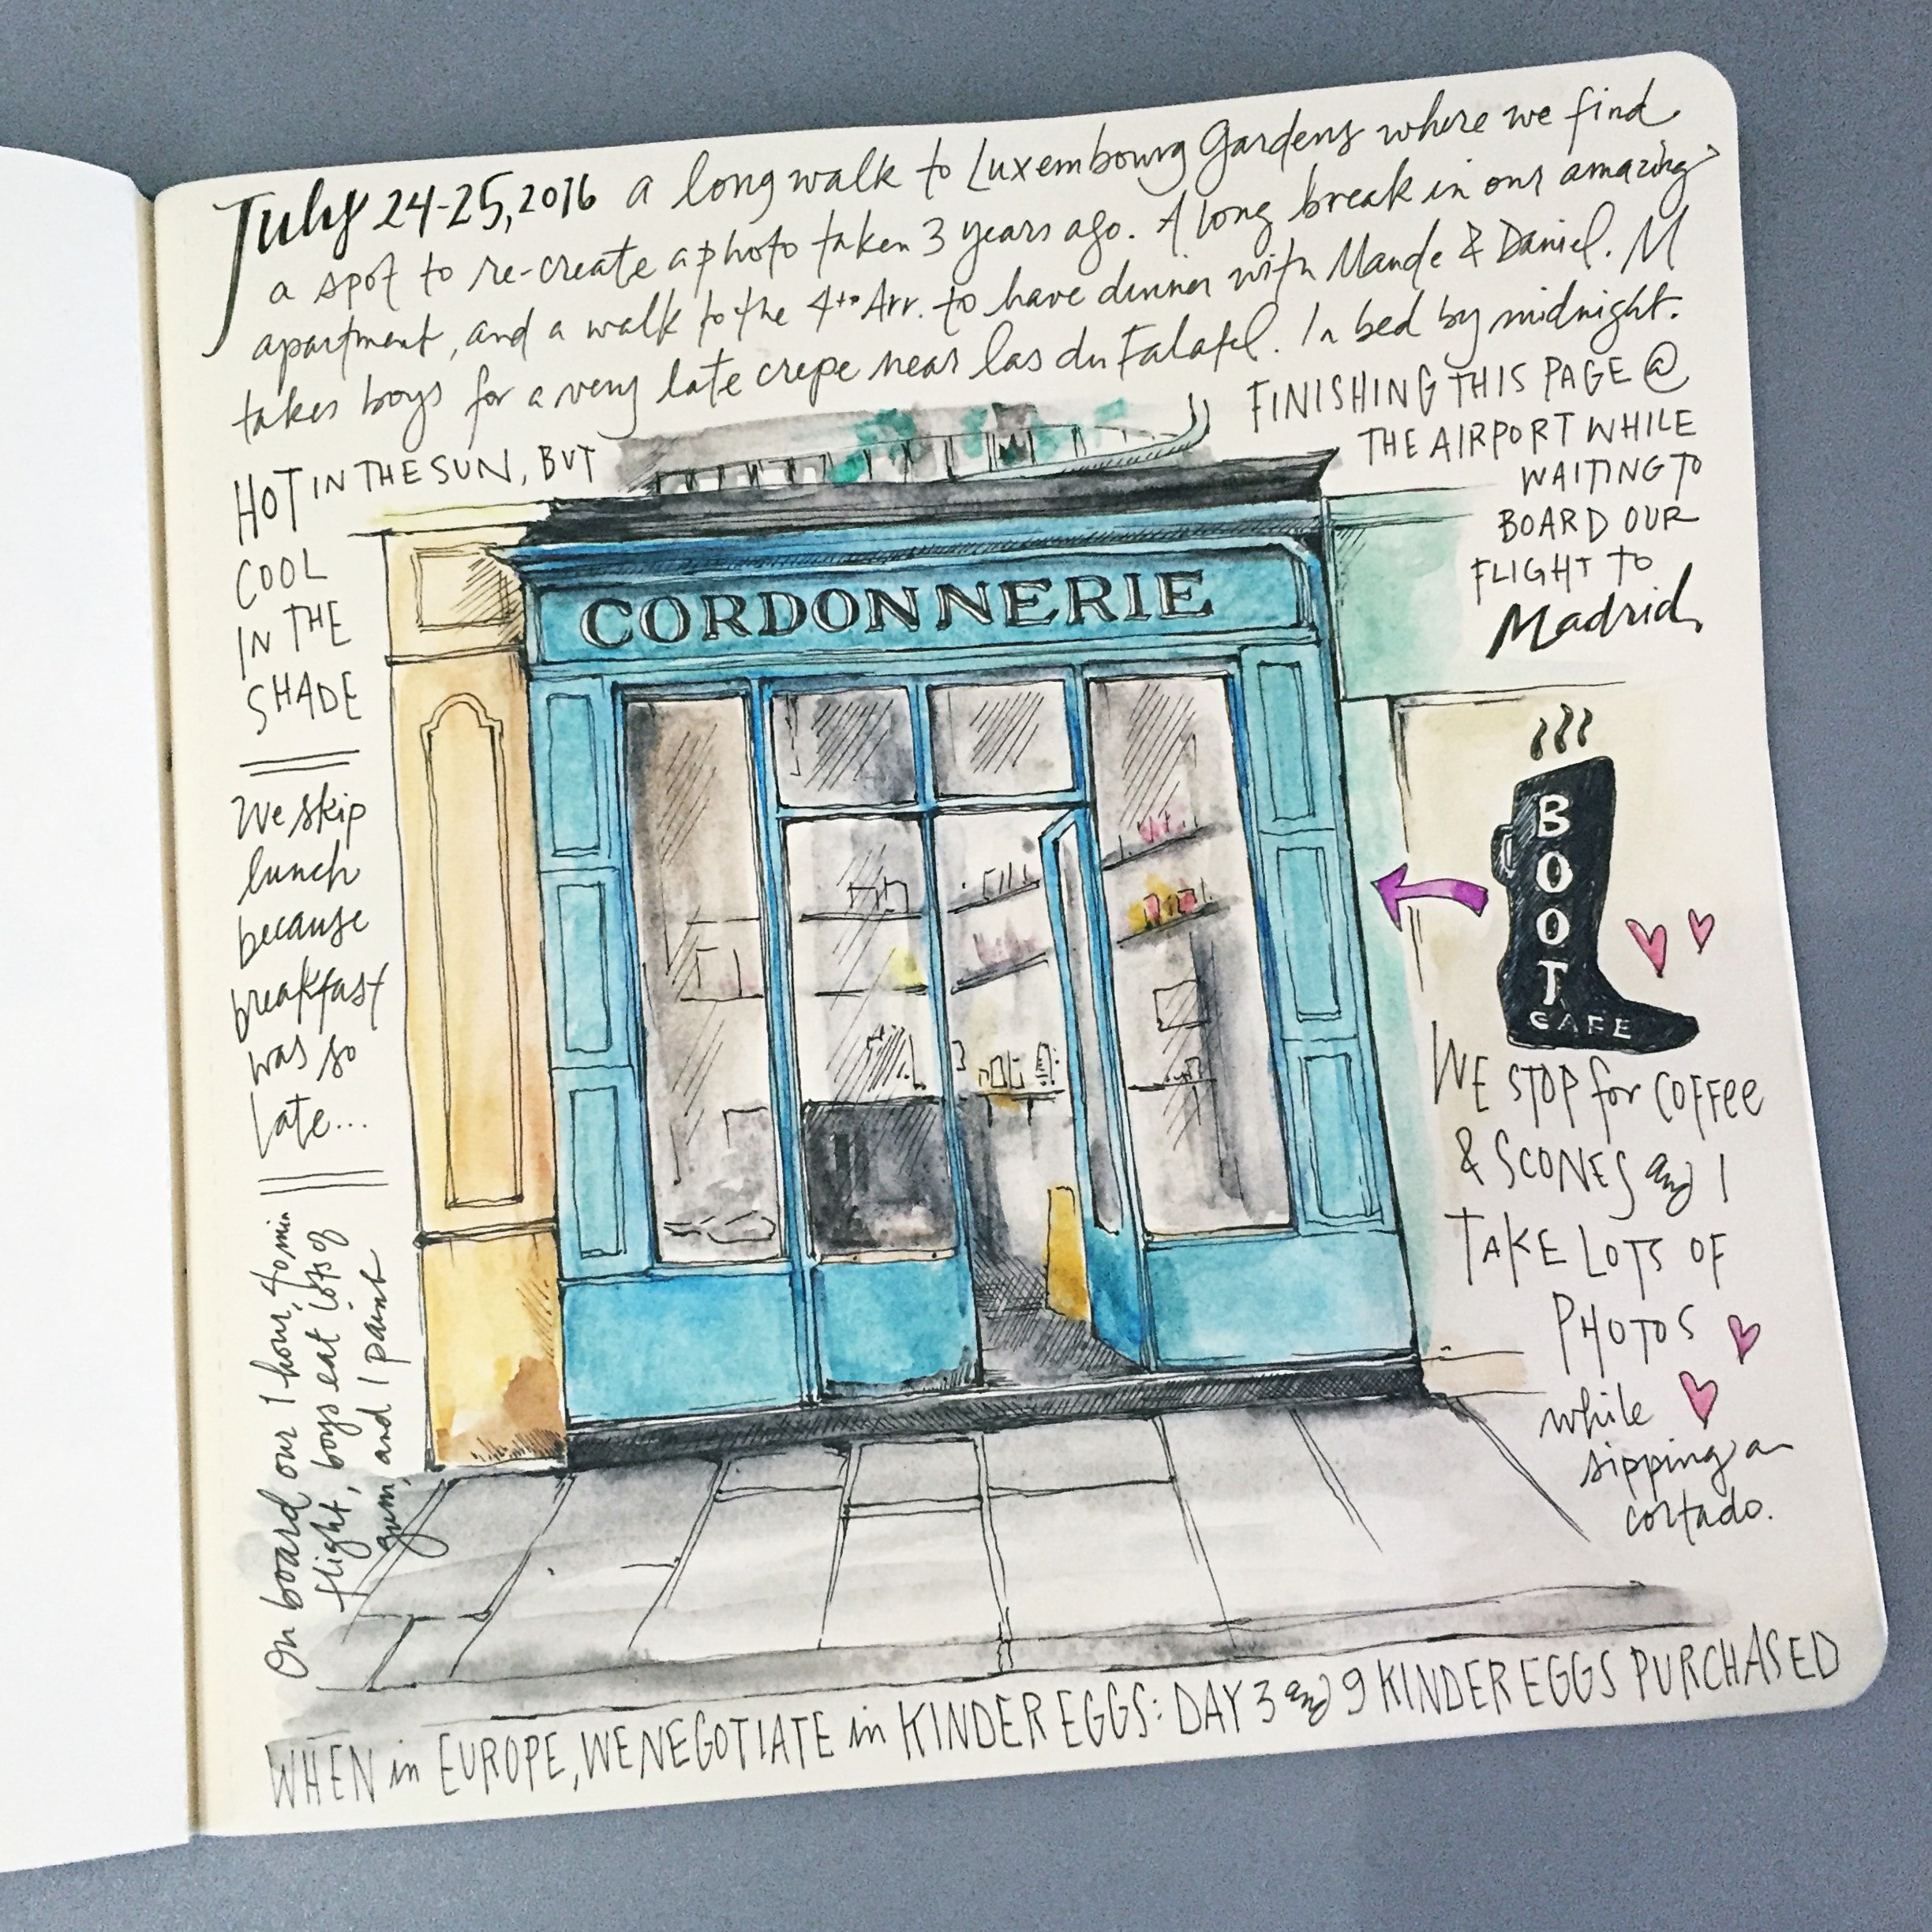 July 24-25, 2016 a long walk to Luxembourg Gardens where we find
a spot to re-create a photo taken 3 years ago. A long break in our amazing
apartment, and a walk to the 4th Arr. to have dinner with Mande & Daniel. M
takes boys for a very late crepe near las du Falafel. In bed by midnight.
HOT IN THE SUN, BUT
COOL
IN THE
SHADE
We skip
lunch
because
breakfast
was so
late...
On board our 1 hour, 40 min
flight, boys eat lots of
gum, and I paint
FINISHING THIS PAGE @
THE AIRPORT WHILE
WAITING TO
BOARD OUR
FLIGHT TO
Madrid.
CORDONNERIE
BOOT
CAFE
WE STOP for COFFEE
& SCONES and I
TAKE LOTS OF
PHOTOS
while
sipping a
cortado.
WHEN in EUROPE, WE NEGOTIATE in KINDER EGGS: DAY 3 and 9 KINDER EGGS PURCHASED